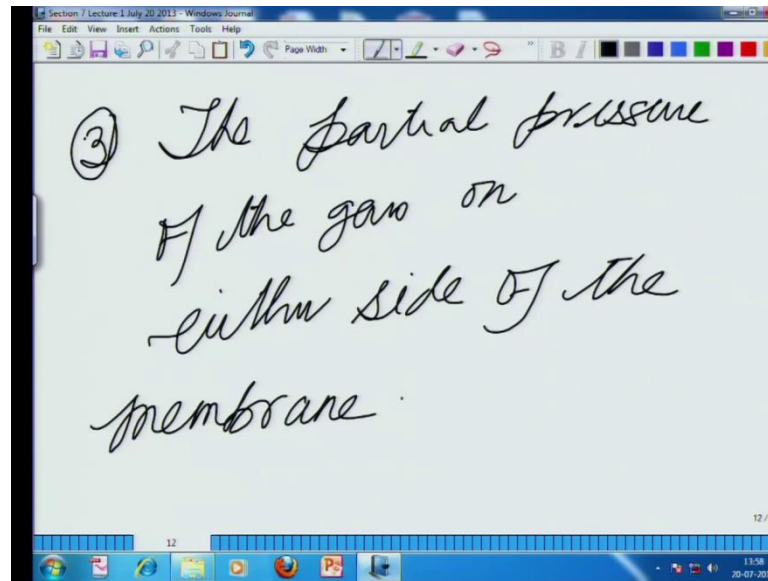 Section 7 Lecture 1 July 20 2013 - Windows Journal
File Edit View Insert Actions Tools Help
Page Width B I
③ The partial pressure
of the gas on
either side of the
membrane.
12/
12
13:58
20-07-20